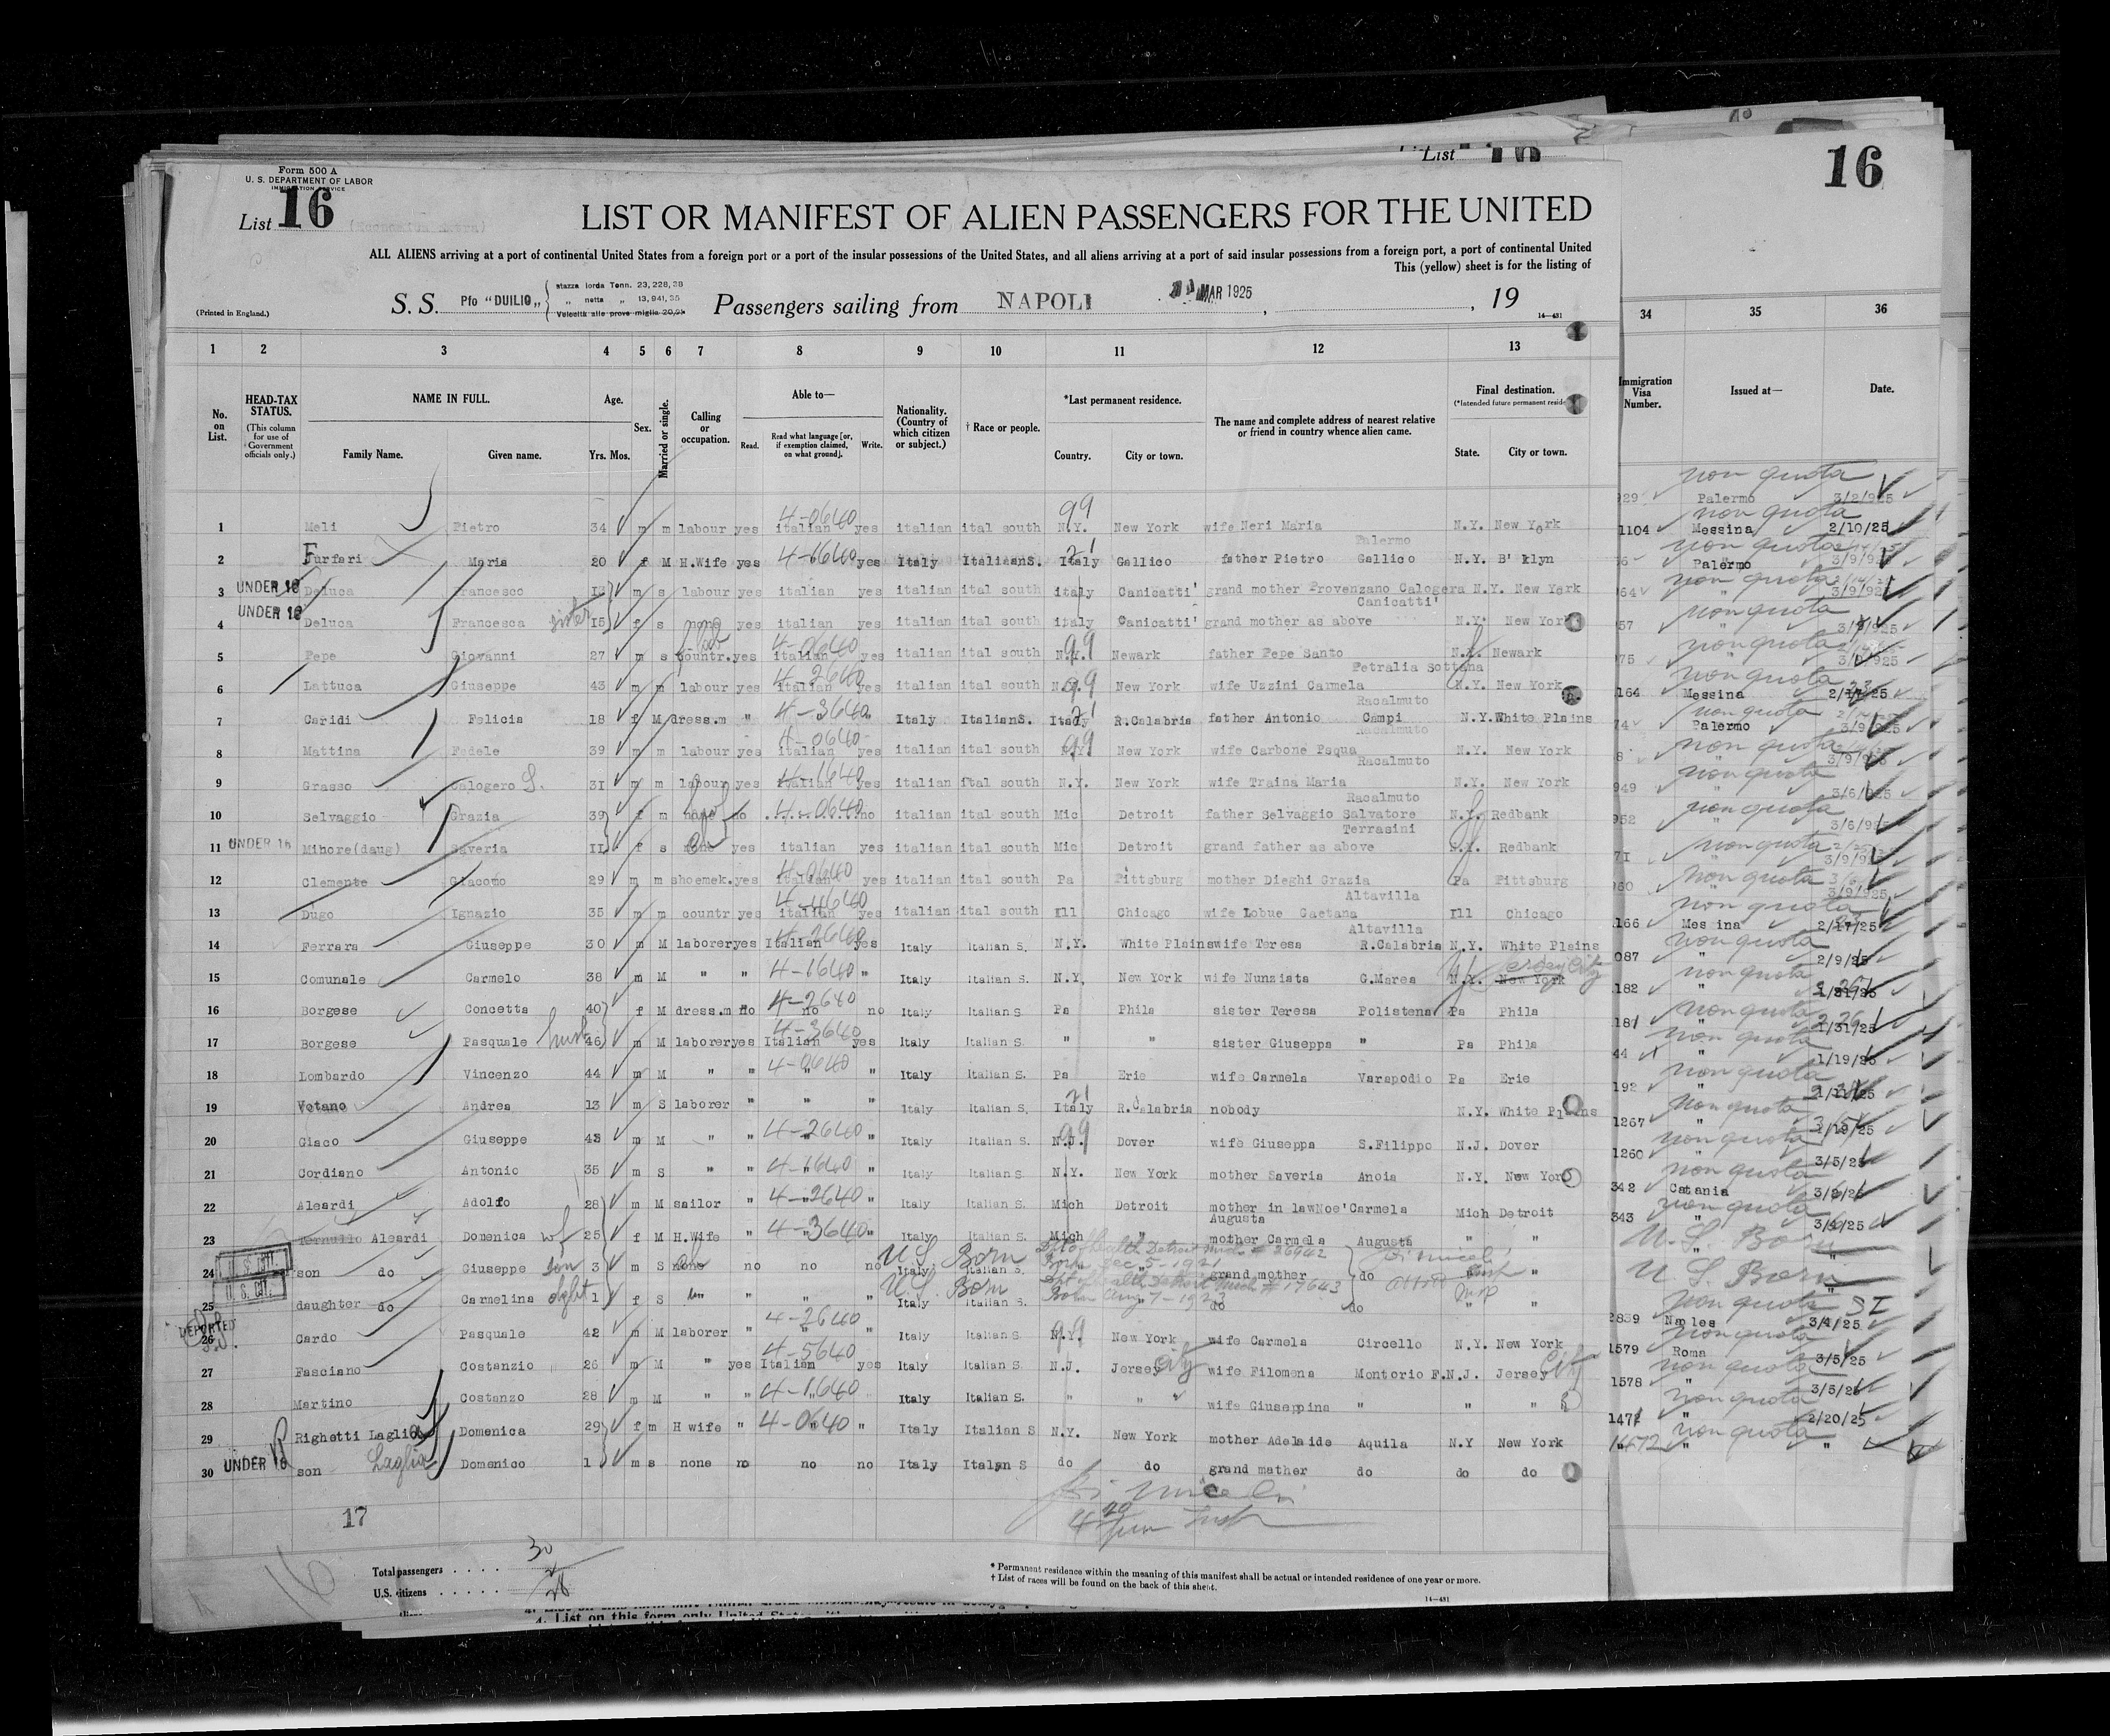 List 16
16
Form 500 A
U. S. DEPARTMENT OF LABOR
IMMIGRATION SERVICE
List 16
LIST OR MANIFEST OF ALIEN PASSENGERS FOR THE UNITED
ALL ALIENS arriving at a port of continental United States from a foreign port or a port of the insular possessions of the United States, and all aliens arriving at a port of said insular possessions from a foreign port, a port of continental United
This (yellow) sheet is for the listing of
(Printed in England.)
S. S. Pfo "DUILIO„ stazza lorda Tonn. 23,228,38
„ netta „ 13,941,35
Velocità alle prove miglia 20,91
Passengers sailing from NAPOLI MAR 1925 , 19
14—481
1 2 3 4 5 6 7 8 9 10 11 12 13 34 35 36
No. on List.
HEAD-TAX STATUS.
(This column for use of Government officials only.)
NAME IN FULL.
Family Name. Given name.
Age.
Yrs. Mos.
Sex.
Married or single.
Calling or occupation.
Able to—
Read. Read what language [or, if exemption claimed, on what ground]. Write.
Nationality. (Country of which citizen or subject.)
† Race or people.
*Last permanent residence.
Country. City or town.
The name and complete address of nearest relative or friend in country whence alien came.
Final destination.
(*Intended future permanent reside
State. City or town.
Immigration Visa Number.
Issued at—
Date.
non quota
929 Palermo 3/2/925
1 Meli Pietro 34 m m labour yes 4-0640 italian yes italian ital south 99 N.Y. New York wife Neri Maria N.Y. New York
Palermo
non quota
1104 Messina 2/10/25
2 Furfari Maria 20 f M H.Wife yes 4-1640 yes Italy ItalianS. Italy Gallico father Pietro Gallico N.Y. B'klyn
non quota
Palermo 3/9/925
3 UNDER 16 Deluca Francesco m s labour yes italian yes italian ital south italy Canicatti' grand mother Provenzano Calogera N.Y. New York
Canicatti'
non quota
64 3/9/925
4 UNDER 16 Deluca Francesca sister 15 f s none yes italian yes italian ital south italy Canicatti' grand mother as above N.Y. New York
non quota
57 3/9/925
5 Pepe Giovanni 27 m s countr. yes 4-0640 italian yes italian ital south 99 Newark father Pepe Santo N.J. Newark
Petralia sottana
non quota
75
6 Lattuca Giuseppe 43 m m labour yes 4-2640 italian yes italian ital south 99 New York wife Uzzini Carmela N.Y. New York
Racalmuto
non quota
164 Messina 2/17/25
7 Caridi Felicia 18 f M dress.m " 4-3640 " Italy ItalianS. Italy R.Calabria father Antonio Campi N.Y. White Plains
Racalmuto
non quota
74 Palermo 3/9/925
8 Mattina Fedele 39 m m labour yes 4-0640 italian yes italian ital south 99 N.Y. New York wife Carbone Psqua N.Y. New York
Racalmuto
non quota
3/9/925
9 Grasso Calogero S. 31 m m labour yes 4-1640 italian yes italian ital south N.Y. New York wife Traina Maria N.Y. New York
Racalmuto
non quota
949 3/6/925
10 Selvaggio Grazia 39 f m none no 4-0640 no italian ital south Mic Detroit father Selvaggio Salvatore Redbank
Terrasini
non quota
952 3/6/925
11 UNDER 16 Minore(daug) Saveria 11 f s none yes italian yes italian ital south Mic Detroit grand father as above Redbank
non quota
71 3/9/925
12 Clemente Giacomo 29 m m shoemek. yes 4-0640 italian yes italian ital south Pa Pittsburg mother Dieghi Grazia Pa Pittsburg
Altavilla
non quota
960 3/9/925
13 Dugo Ignazio 35 m m countr yes 4-4640 italian yes italian ital south Ill Chicago wife Lobue Gaetana Ill Chicago
Altavilla
non quota
166 Messina 2/17/25
14 Ferrara Giuseppe 30 m M laborer yes 4-2640 Italian yes Italy Italian S. N.Y. White Plains wife Teresa R.Calabria N.Y. White Plains
non quota
087 " 2/9/25
15 Comunale Carmelo 38 m M " " 4-1640 " Italy Italian S. N.Y. New York wife Nunziata G.Marea N.Y. New York Jersey City
non quota
182 " 1/31/25
16 Borgese Concetta 40 f M dress.m no 4-2640 no no Italy Italian S Pa Phila sister Teresa Polistena Pa Phila
non quota
181 1/31/25
17 Borgese Pasquale husb 46 m M laborer yes 4-3640 Italian yes Italy Italian S. " " sister Giuseppa " Pa Phila
non quota
44 " 1/19/25
18 Lombardo Vincenzo 44 m M " " 4-0640 " Italy Italian S. Pa Erie wife Carmela Varapodio Pa Erie
non quota
192 "
19 Votano Andrea 13 m S laborer " " " Italy Italian S. Italy R.Calabria nobody N.Y. White Plains
non quota
1267 " 2/19/25
20 Giaco Giuseppe 43 m M " " 4-2640 " Italy Italian S. 99 N.J. Dover wife Giuseppa S.Filippo N.J. Dover
non quota
1260 " 3/5/25
21 Cordiano Antonio 35 m S " " 4-1640 " Italy Italian S. N.Y. New York mother Saveria Anoia N.Y. New York
non quota
342 Catania 3/2/25
22 Aleardi Adolfo 28 m M sailor " 4-2640 " Italy Italian S. Mich Detroit mother in law Noe' Carmela Mich Detroit
Augusta
non quota
343 " 3/4/25
23 Aleardi Domenica wf 25 f M H.Wife " 4-3640 " Italy Italian S. Mich " mother Carmela Augusta " "
U.S. Born "
24 U. S. CIT. son do Giuseppe son 3 m S none no no no U.S. Born Italy Italian S. Dpt of health Detroit Mich # 26942 Born Dec 5-1921 grand mother do " "
U.S. Born "
25 U. S. CIT. daughter do Carmelina dght 1 f S " " " " U.S. Born Italy Italian S. Dpt of health Detroit Mich # 17643 Born Aug 7-1923 do do " "
non quota SI
2839 Naples 3/4/25
26 DEPORTED Cardo Pasquale 42 m M laborer " 4-2640 " " Italy Italian S 99 N.Y. New York wife Carmela Circello N.Y. New York
non quota
1579 Roma 3/5/25
27 Fasciano Costanzio 26 m M " yes 4-5640 Italian yes Italy Italian S N.J. Jersey City wife Filomena Montorio F. N.J. Jersey City
non quota
1578 " 3/5/25
28 Martino Costanzo 28 m M " " 4-1640 " Italy Italian S. " " " wife Giuseppina " " "
non quota
1471 " 2/20/25
29 Righetti Laglia Domenica 29 f m H wife " 4-0640 " Italy Italian S N.Y. New York mother Adelaide Aquila N.Y New York
non quota
1472 " "
30 UNDER 16 son Laglia Domenico 1 m s none no no no Italy Italyn S do do grand mather do do do
17
16
Total passengers . . . . . 30
U.S. citizens . . . . . 2
28
* Permanent residence within the meaning of this manifest shall be actual or intended residence of one year or more.
† List of races will be found on the back of this sheet.
14—481